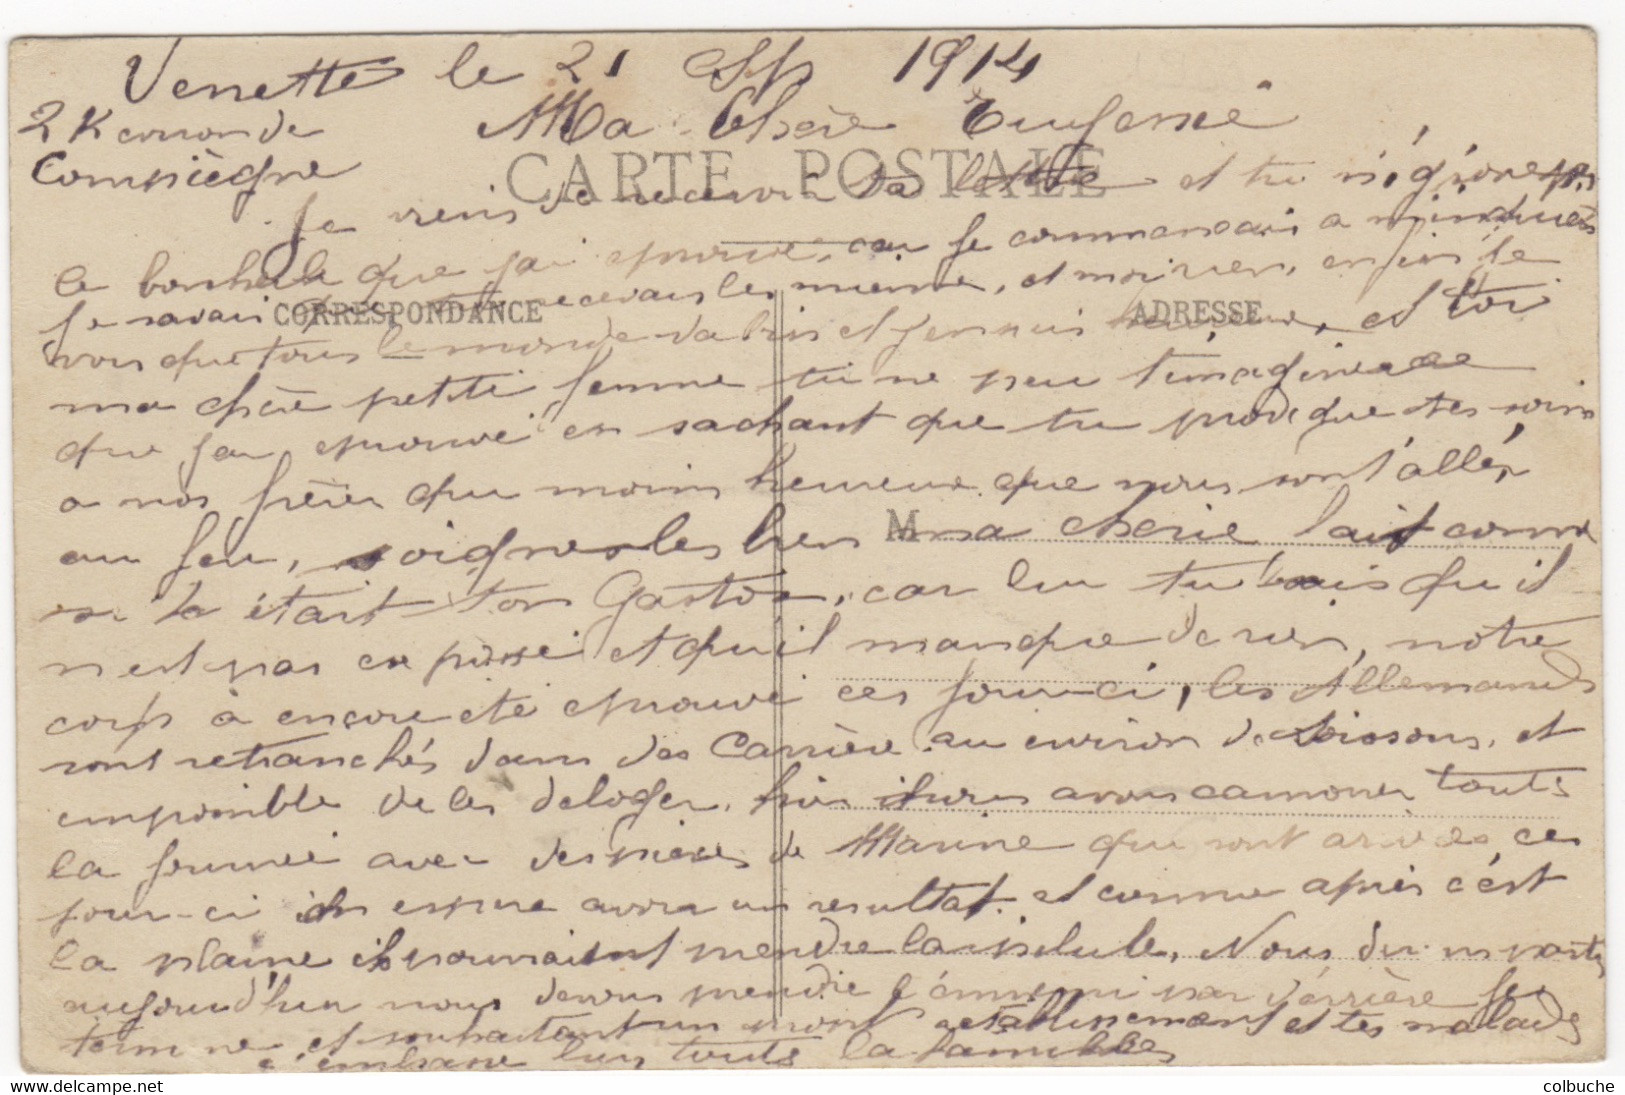 Venette le 21 Sep 1914
2 K environ de
Compiègne
Ma Chère Eugenie
CARTE POSTALE
Je viens de recevoir ta lettre et tu
le bonheur que j'ai éprouvé, car je commencais a m'inquiéter
je savais que tu recevais les miennes, et moi rien, enfin je
CORRESPONDANCE
ADRESSE
vois que tous le monde va bien et j'en suis heureux, et toi
ma chère petite femme tu ne peu t'imaginer
que j'ai éprouvé en sachant que tu prodigue tes soins
a nos frères qui moins heureux que nous sont allés
au feu, soignes les bien ma cherie fait comme
M
si s'était ton Gaston, car lui tu sais qu'il
n'est pas exposé et qu'il manque de rien, notre
corps à encore été éprouvé ces jour-ci, les Allemands
sont retranchés dans des Carrière au environ de Soissons, et
impossible de les deloger, hier il avons canonner toute
la journée avec des pièces de Marine qui sont arrivées ces
jour-ci on espere avoir un resultat et comme après c'est
la plaine ils pourraient prendre la pilule, Nous partons
aujourd'hui nous devons prendre l'énnemi par dérrière je
termine et souhaitant un pront retablissement et tes malades
j'embrasse bien toute la famille
colbuche